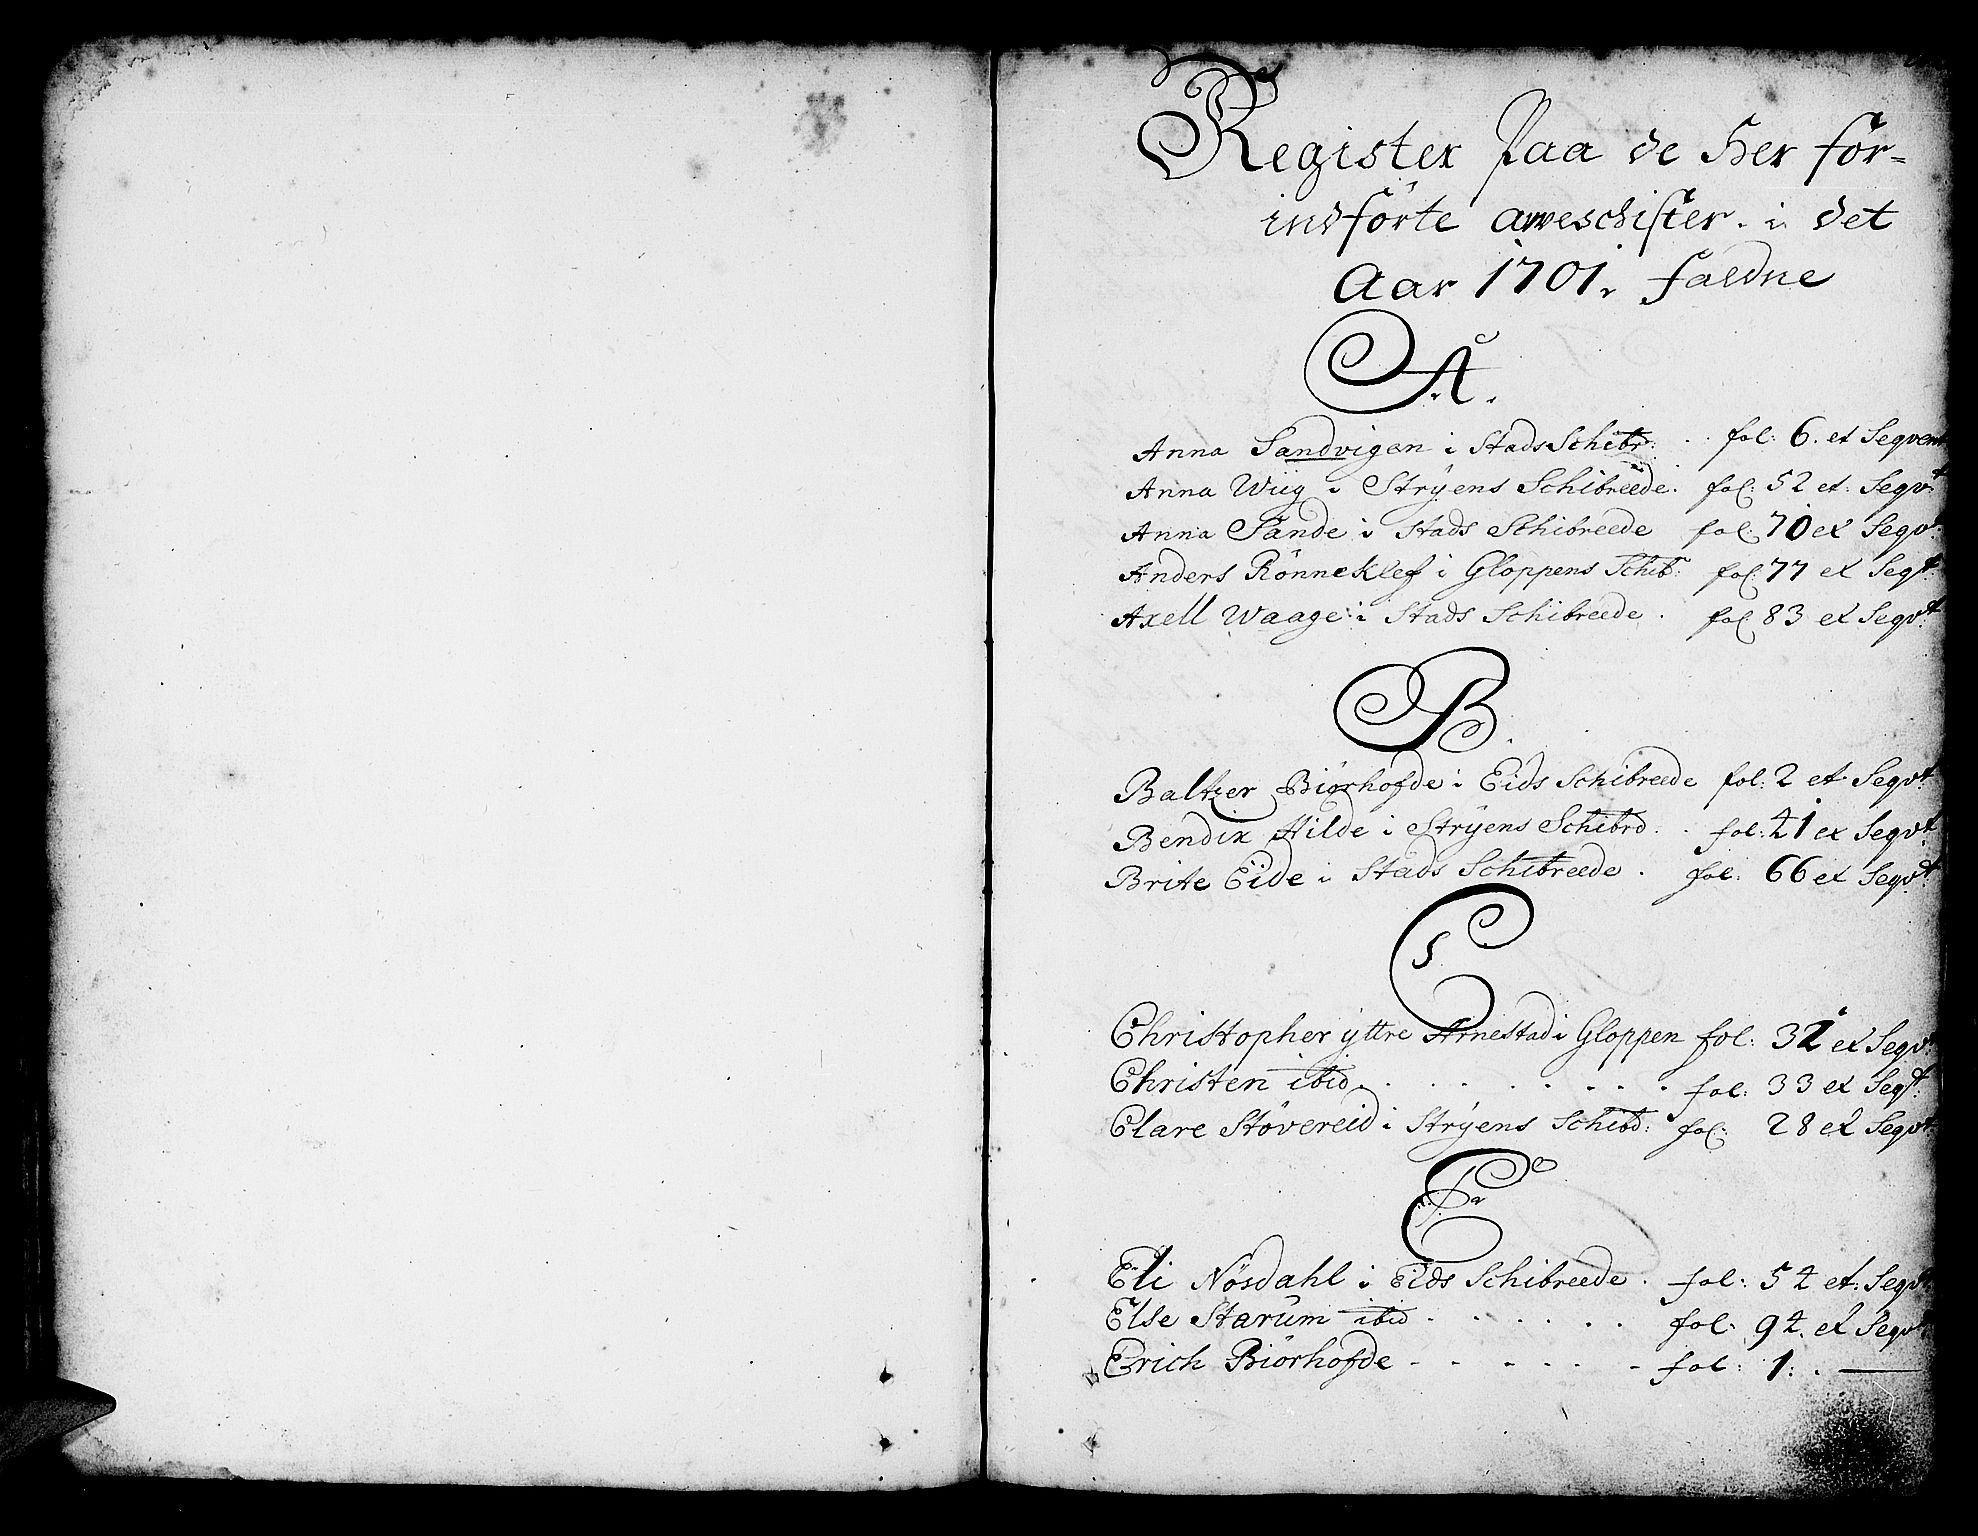 Register Paa de Her for-
indförte arveschifter i det
Aar 1701. faldne
A.
Anna Sandvigen i Stads Schibr: . . fol: 6. et Seqvent
Anna Wiig i Strÿens Schibreede. fol: 52 et: Seqvt
Anna Sande i Stads Schibreede fol: 70 et Seqvt
Anders Rönneklef i Gloppens Schibr: fol: 77 et Seqt
Axell Waage i Stads Schibreede . fol: 83 et Seqvt
B.
Baltzer Biörhofde i Eids Schibreede fol: 2 et Seqvt
Bendix Hilde i Strÿens Schibrd. . fol: 41 et Seqvt
Brite Eide i Stads Schibreede . fol: 66 et Seqvt
C
Christopher ÿttre Arnestad i Gloppen fol: 32 et Seqvt
Christen ibid. . . . . . . . fol: 33 et Seqt
Clare Stövereid i Strÿens Schibd: fol: 28 et Seqvt
E
Eli Nösdahl i Eids Schibreede . fol: 54 et: Seqvt
Else Starum ibid . . . . . . fol: 94. et Seqvt
Erich Biörhofde - - - - - - fol: 1: . —